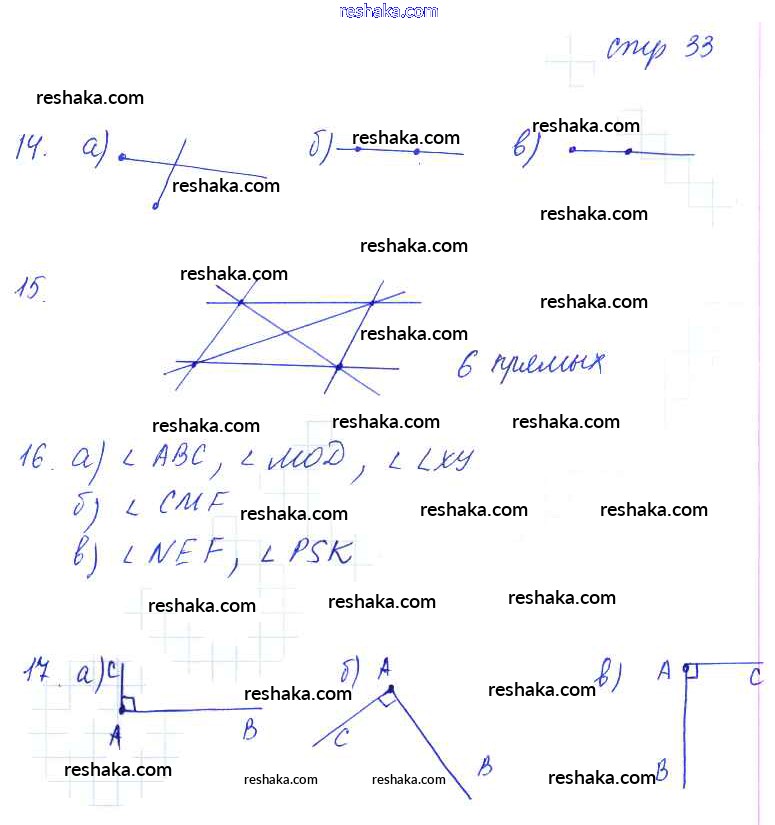 reshaka.com
стр 33
reshaka.com
14. а) б) reshaka.com в) reshaka.com
reshaka.com
reshaka.com
reshaka.com
15. reshaka.com
reshaka.com
reshaka.com
6 прямых
reshaka.com reshaka.com reshaka.com
16. а) ∠ ABC, ∠ MOD, ∠ LXY
б) ∠ CMF reshaka.com reshaka.com reshaka.com
в) ∠ NEF, ∠ PSK
reshaka.com reshaka.com reshaka.com
17. а) C б) A в) A C
reshaka.com reshaka.com
A B C B B
reshaka.com reshaka.com reshaka.com reshaka.com